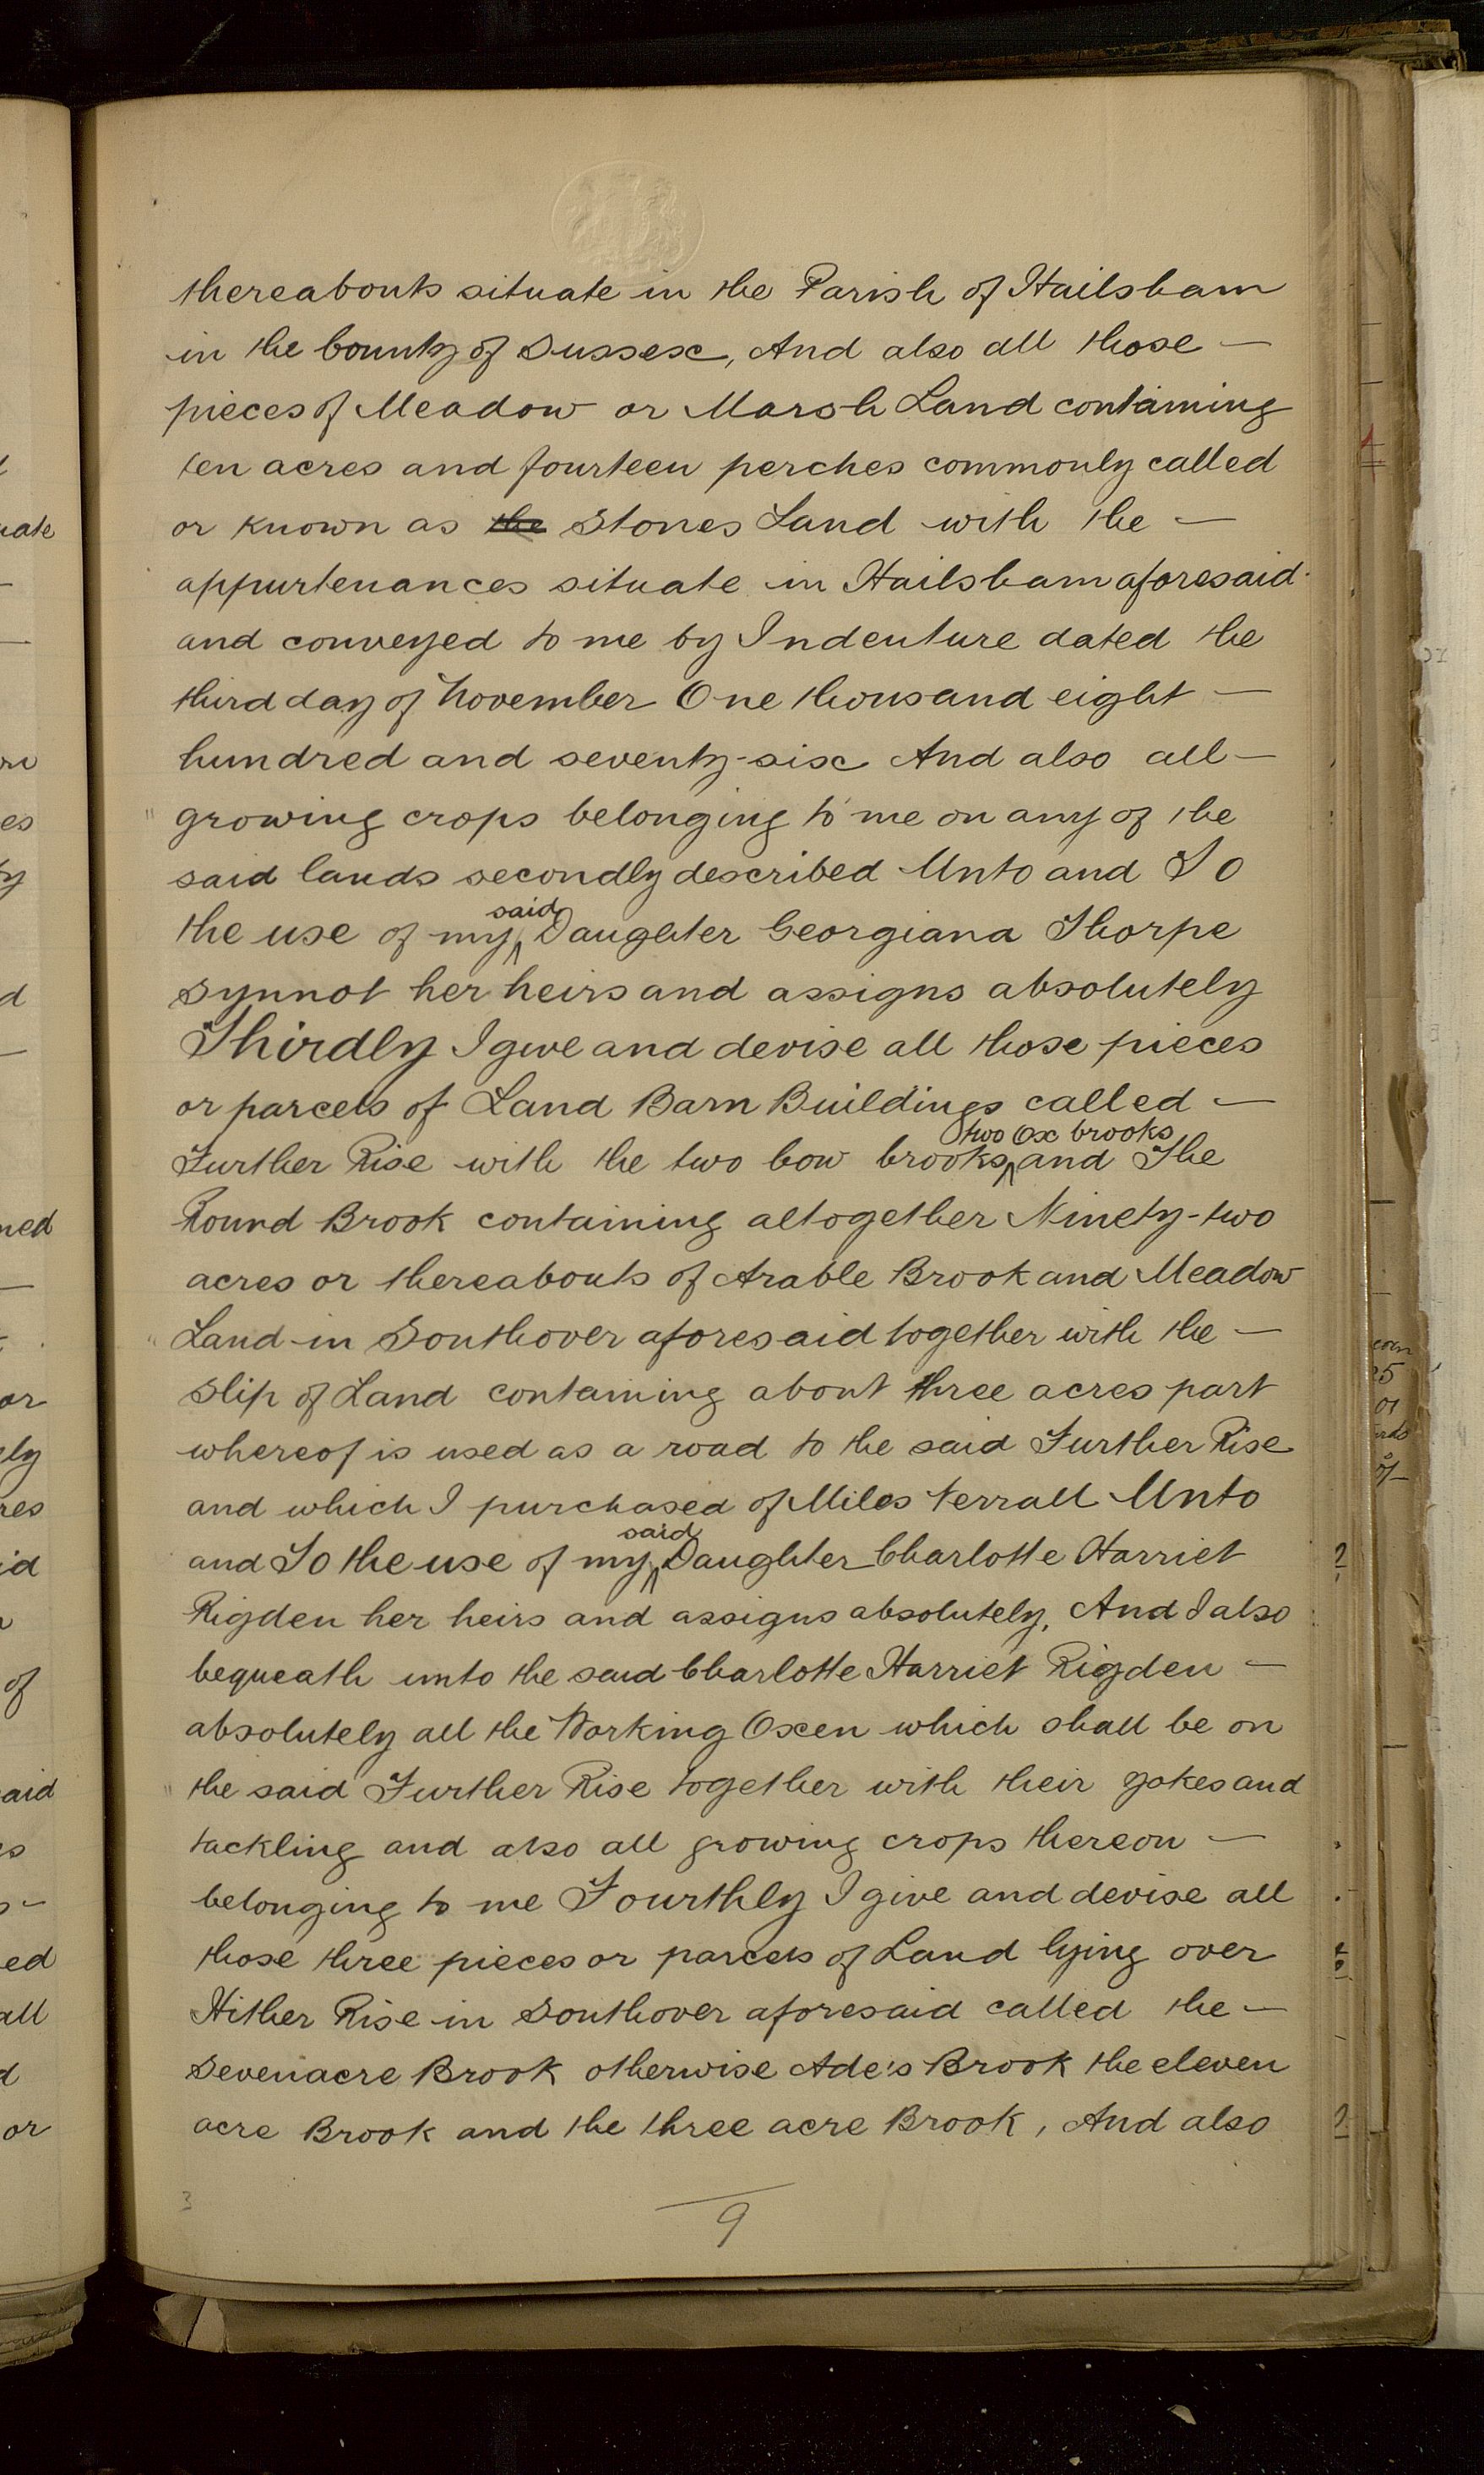 thereabouts situate in the Parish of Hailsham
in the County of Sussex, And also all those —
pieces of Meadow or Marsh Land containing
ten acres and fourteen perches commonly called
or known as the Stones Land with the —
appurtenances situate in Hailsham aforesaid
and conveyed to me by Indenture dated the
third day of November One thousand eight —
hundred and seventy-six And also all —
growing crops belonging to me on any of the
said lands secondly described Unto and To
said
the use of my Daughter Georgiana Thorpe
Synnot her heirs and assigns absolutely
Thirdly I give and devise all those pieces
or parcels of Land Barn Buildings called —
two Ox brooks
Further Rise with the two Cow brooks and The
Round Brook containing altogether Ninety-two
acres or thereabouts of Arable Brook and Meadow
Land in Southover aforesaid together with the —
Slip of Land containing about three acres part
whereof is used as a road to the said Further Rise
and which I purchased of Miles Verrall Unto
said
and To the use of my Daughter Charlotte Harriet
Rigden her heirs and assigns absolutely, And I also
bequeath unto the said Charlotte Harriet Rigden —
absolutely all the Working Oxen which shall be on
the said Further Rise together with their yokes and
tackling and also all growing crops thereon —
belonging to me Fourthly I give and devise all
those three pieces or parcels of Land lying over
Hither Rise in Southover aforesaid called the —
Sevenacre Brook otherwise Ade's Brook the eleven
acre Brook and the three acre Brook, And also
3
9